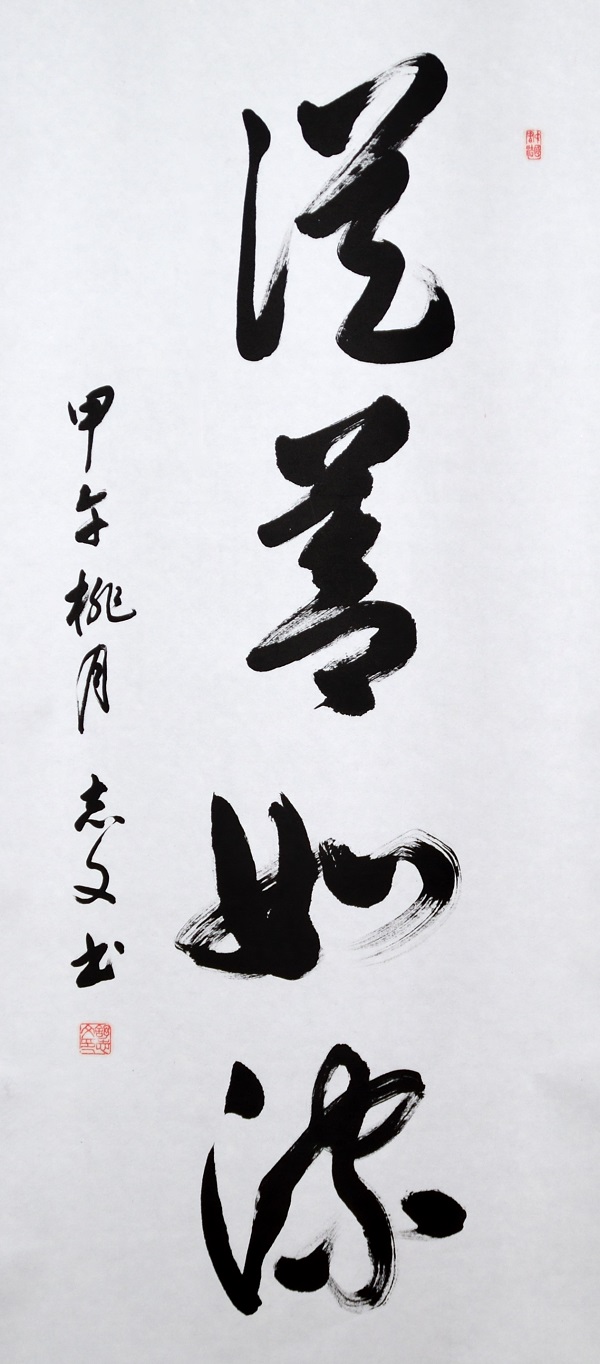 從善如流
甲午桃月 志文书